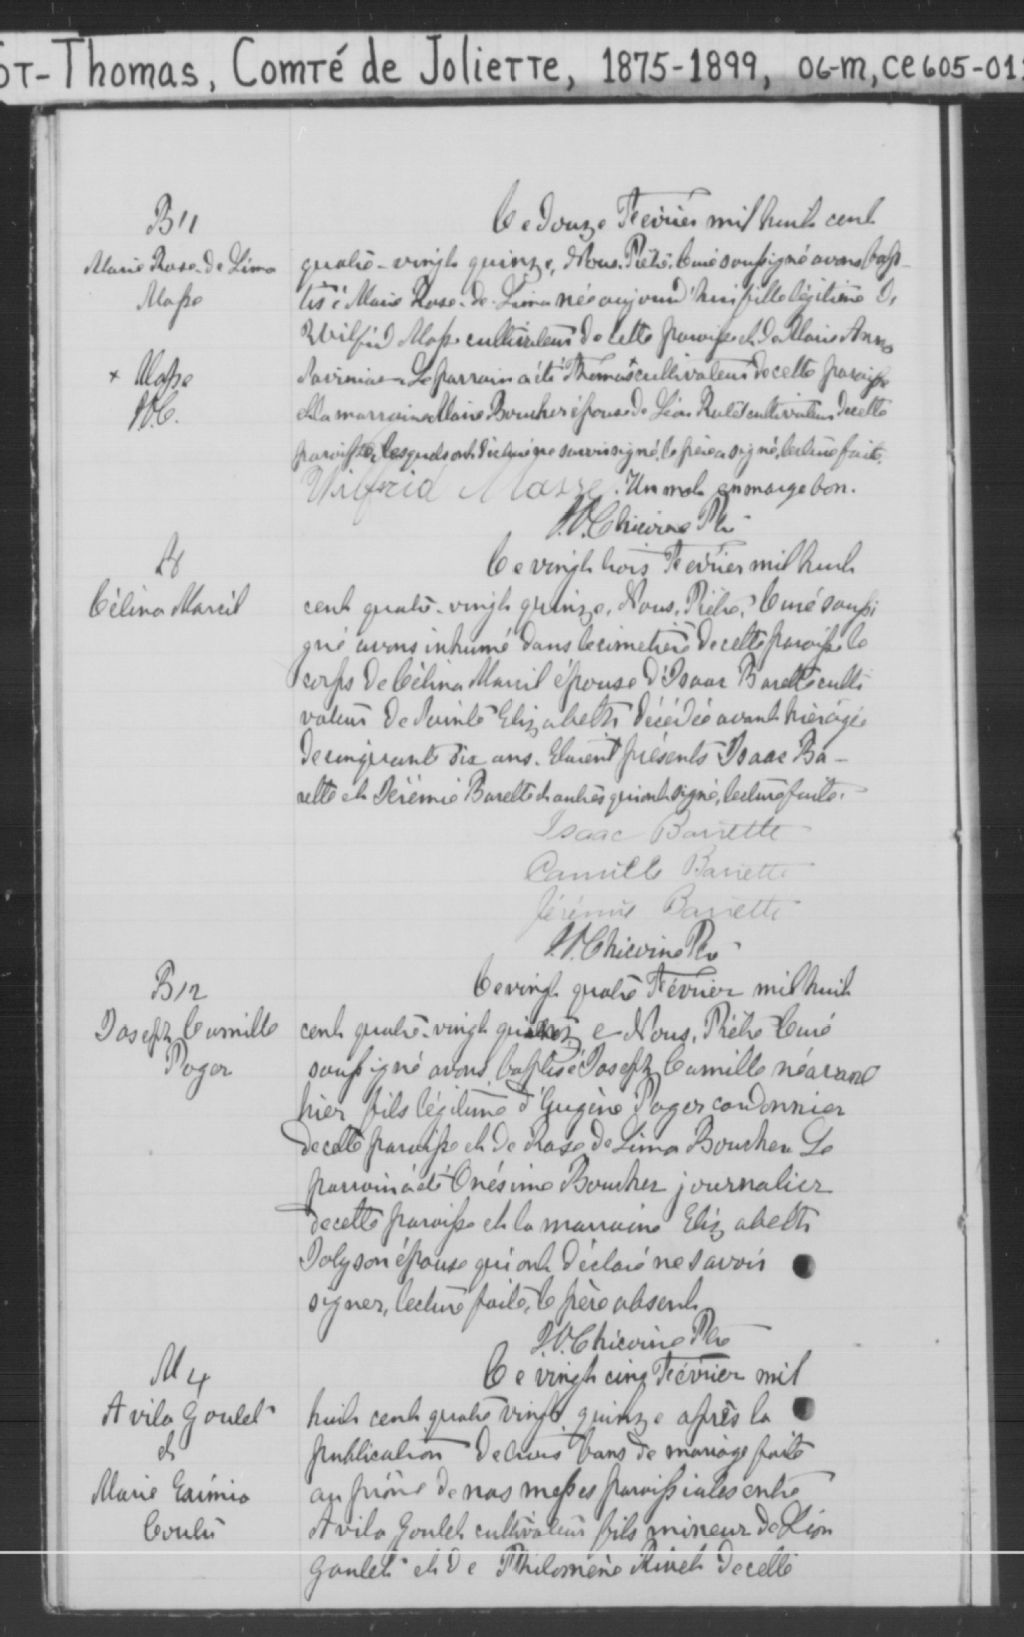 St-Thomas, Comté de Joliette, 1875-1899, 06-M, CE605-01
B11
Marie Rose-de-Lima
Masse
+ Masse
Ce douze Février mil huit cent
quatre-vingt quinze, Nous, Prêtre, Curé soussigné avons bap-
tisé Marie Rose-de-Lima née aujourd'hui fille légitime de
Wilfrid Masse cultivateur de cette paroisse et de Marie Anne
Le parrain a été Thomas + cultivateur de cette paroisse
et la marraine Marie Boucher épouse de Léon cultivateur de cette
paroisse lesquels ont déclaré ne savoir signé, le père a signé, lecture faite.
Wilfrid Masse. Un mot en marge bon.
Chicoine Ptre
S
Célina Marcil
Ce vingt trois Février mil huit
cent quatre-vingt quinze, Nous, Prêtre, Curé soussi
gné avons inhumé dans le cimetière de cette paroisse le
corps de Célina Marcil épouse d'Isaac Barette culti
vateur de Sainte Elizabeth décédée avant hier âgée
de cinquante six ans. Etaient présents Isaac Ba-
rette et Jérémie Barette et autres qui ont signé, lecture faite.
Isaac Barrette
Camille Barrette
Jérémie Barrette
Chicoine Ptre
B12
Joseph Camille
Roger
Ce vingt quatre Février mil huit
cent quatre-vingt quinze Nous, Prêtre Curé
soussigné avons baptisé Joseph Camille né avant
hier fils légitime d'Eugène Roger cordonnier
de cette paroisse et de Rose de Lima Boucher. Le
parrain a été Onésime Boucher journalier
de cette paroisse et la marraine Elizabeth
Joly son épouse qui ont déclaré ne savoir
signer, lecture faite, le père absent
Chicoine Ptre
M4
Avila Goulet
et
Marie
Coutu
Ce vingt cinq Février mil
huit cent quatre vingt quinze après la
publication de trois bans de mariage faite
au prône de nos messes paroissiales entre
Avila Goulet cultivateur fils mineur de Léon
Goulet et de Philomène Rivet de cette